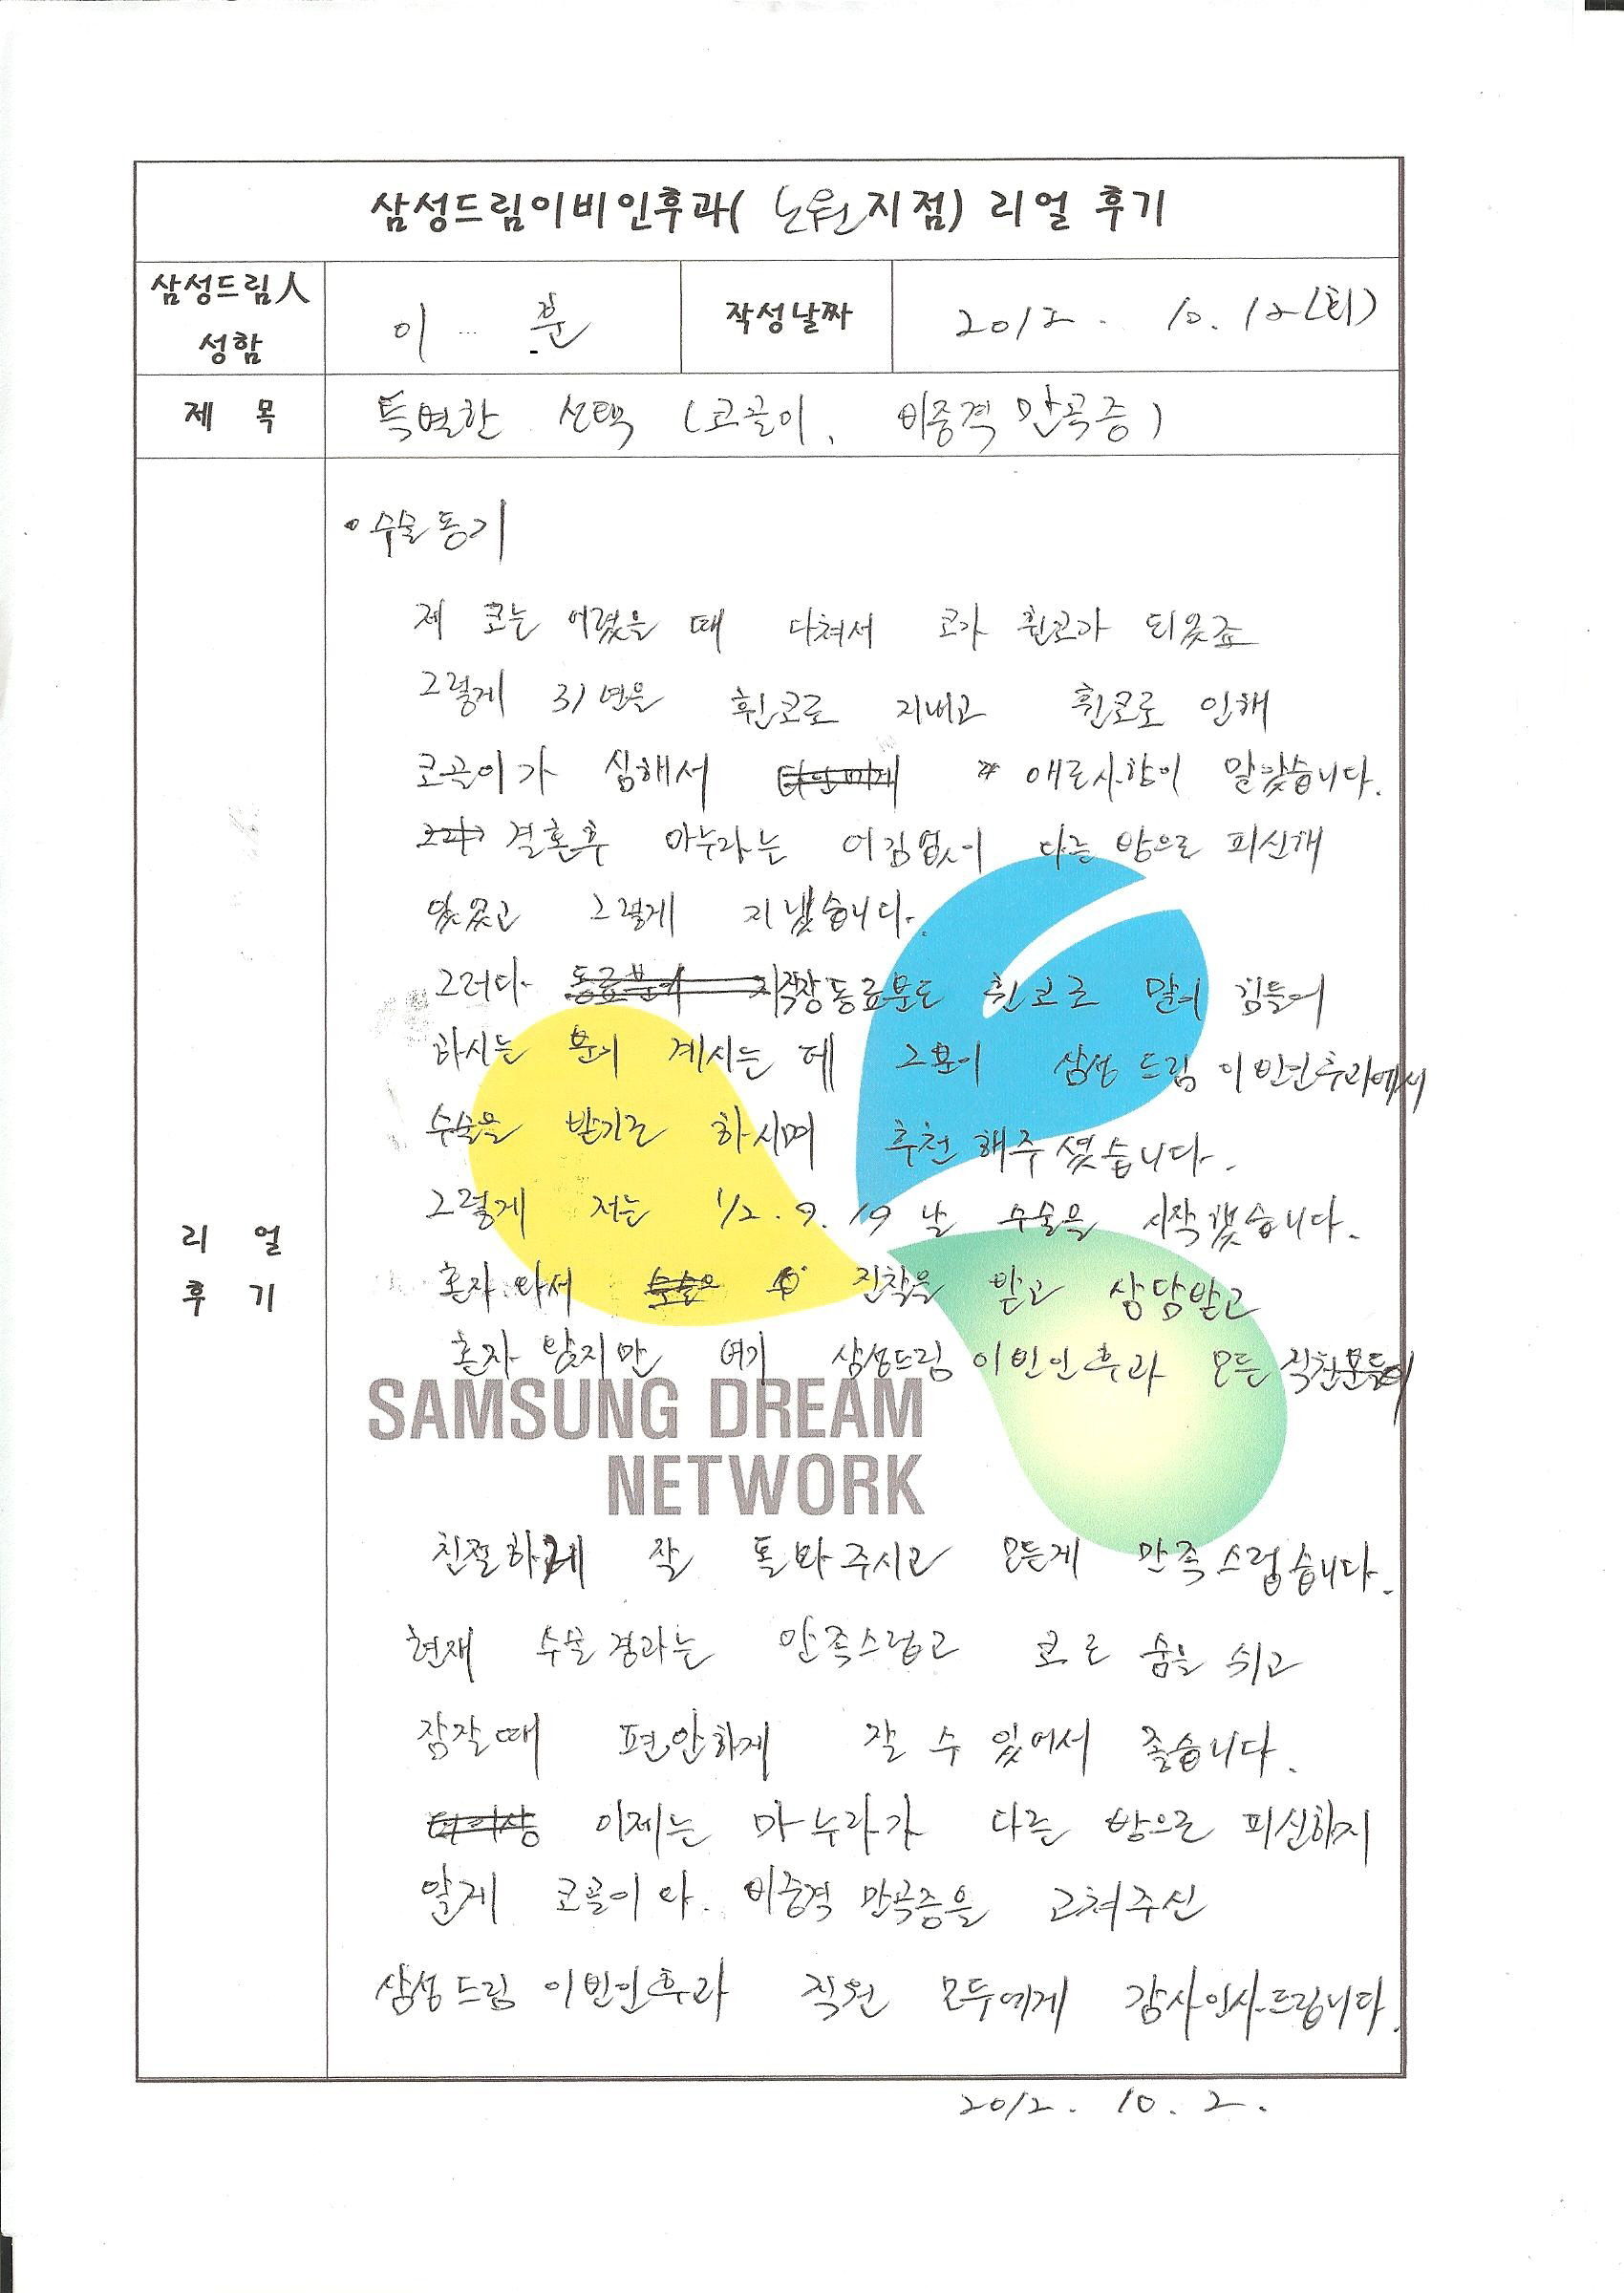 삼성드림이비인후과( 노원지점) 리얼 후기
삼성드림人
성함
이 훈
작성날짜
2012. 10. 12(화)
제 목
특별한 선택 (코골이, 비중격 만곡증)
리 얼
후 기
• 수술동기
제 코는 어렸을 때 다쳐서 코가 휜코가 되었죠
그렇게 31년을 휜코로 지내고 휜코로 인해
코골이가 심해서 애로사항이 많았습니다.
결혼후 마누라는 어김없이 다른 방으로 피신해
있었고 그렇게 지냈습니다.
그러다 직장동료분도 휜코로 많이 힘들어
하시는 분이 계시는 데 그분이 삼성 드림 이빈인후과에서
수술을 받기로 하시며 추천해주셨습니다.
그렇게 저는 12.9.19 날 수술을 시작했습니다.
혼자 와서 진찰을 받고 상담받고
혼자 왔지만 여기 삼성드림 이빈인후과 모든 직원분들이
SAMSUNG DREAM
NETWORK
친절하게 잘 돌봐주시고 모든게 만족스럽습니다.
현재 수술경과는 만족스럽고 코로 숨을 쉬고
잠잘때 편안하게 잘 수 있어서 좋습니다.
이제는 마누라가 다른 방으로 피신하지
않게 코골이와 비중격 만곡증을 고쳐주신
삼성드림 이빈인후과 직원 모두에게 감사인사드립니다.
2012. 10. 2.